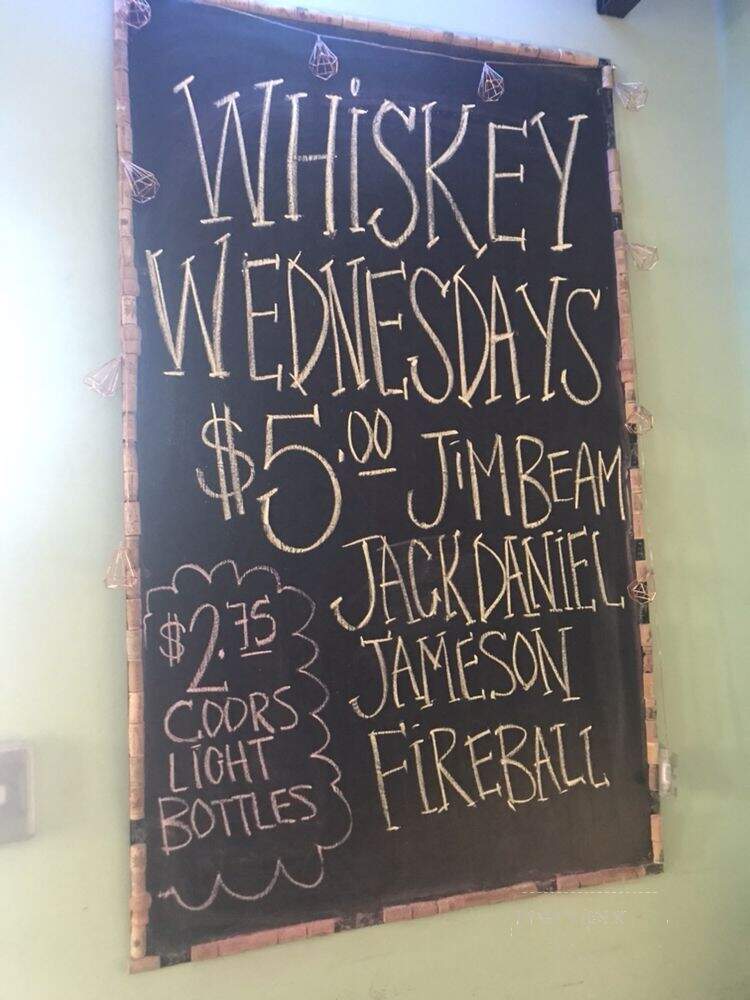 WHiSKEY
WEDNESDAYS
$5.00 JiM BEAM
JACK DANiEL
JAMESON
FiREBALL
$2.75
COORS
LIGHT
BOTTLES